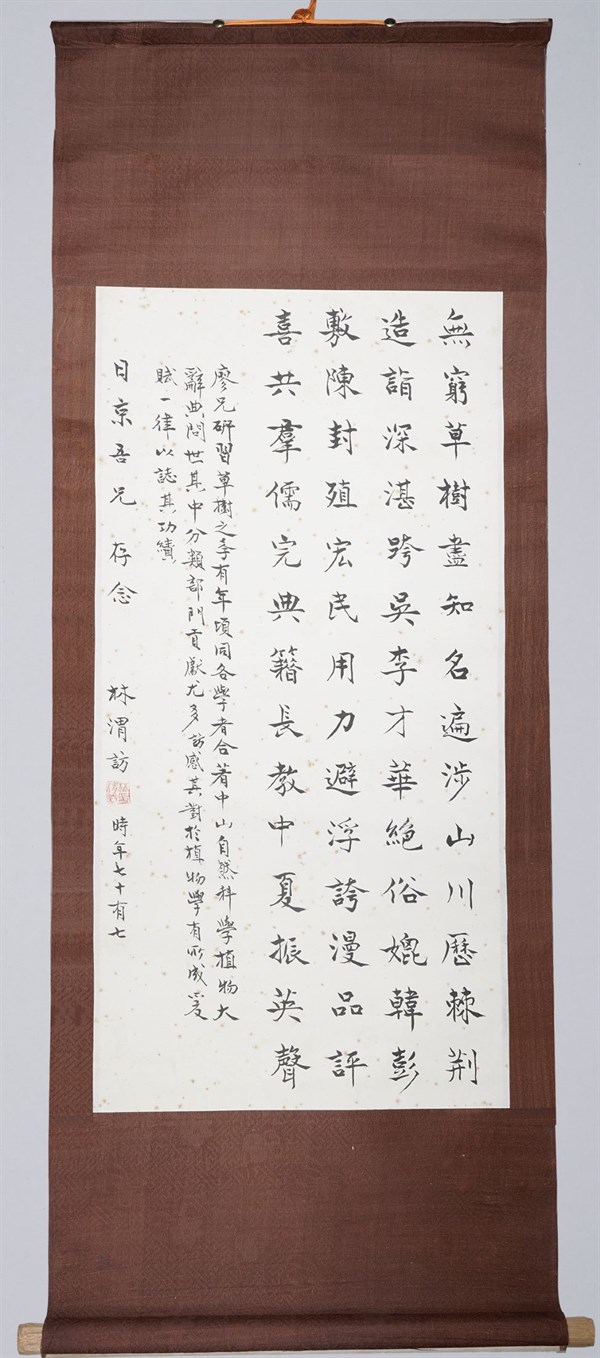 無窮草樹盡知名遍涉山川歷棘荆
造詣深湛跨吳李才華絕俗媲韓彭
敷陳封殖宏民用力避浮誇漫品評
喜共羣儒完典籍長教中夏振英聲
廖兄研習草樹之季有年頃同各學者合著中山自然科學植物大
辭典問世其中分類部門貢獻尤多訪感其對於植物學有所成爰
賦一律以誌其功績
日京吾兄存念
林渭訪
時年七十有七